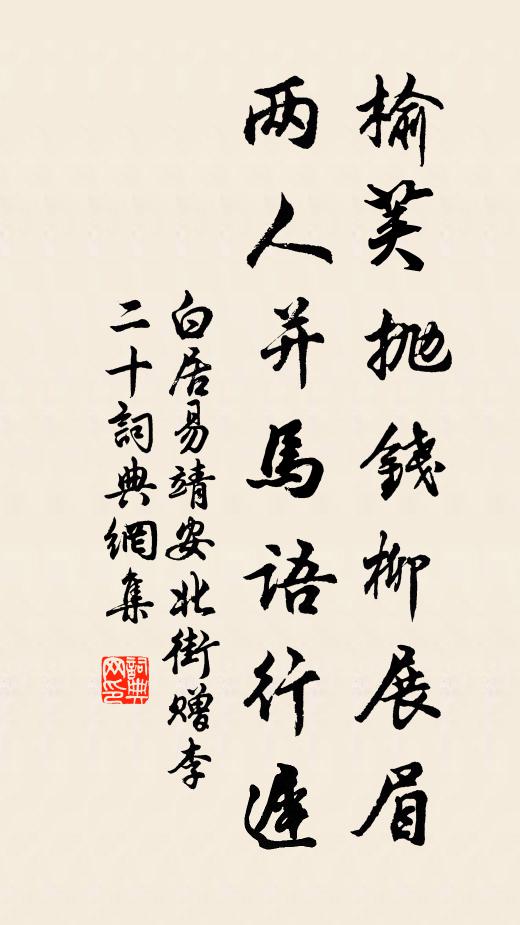 榆荚抛錢柳展眉
两人并馬語行遲
白居易靖安北街赠李
二十詞典網集
詞典网印